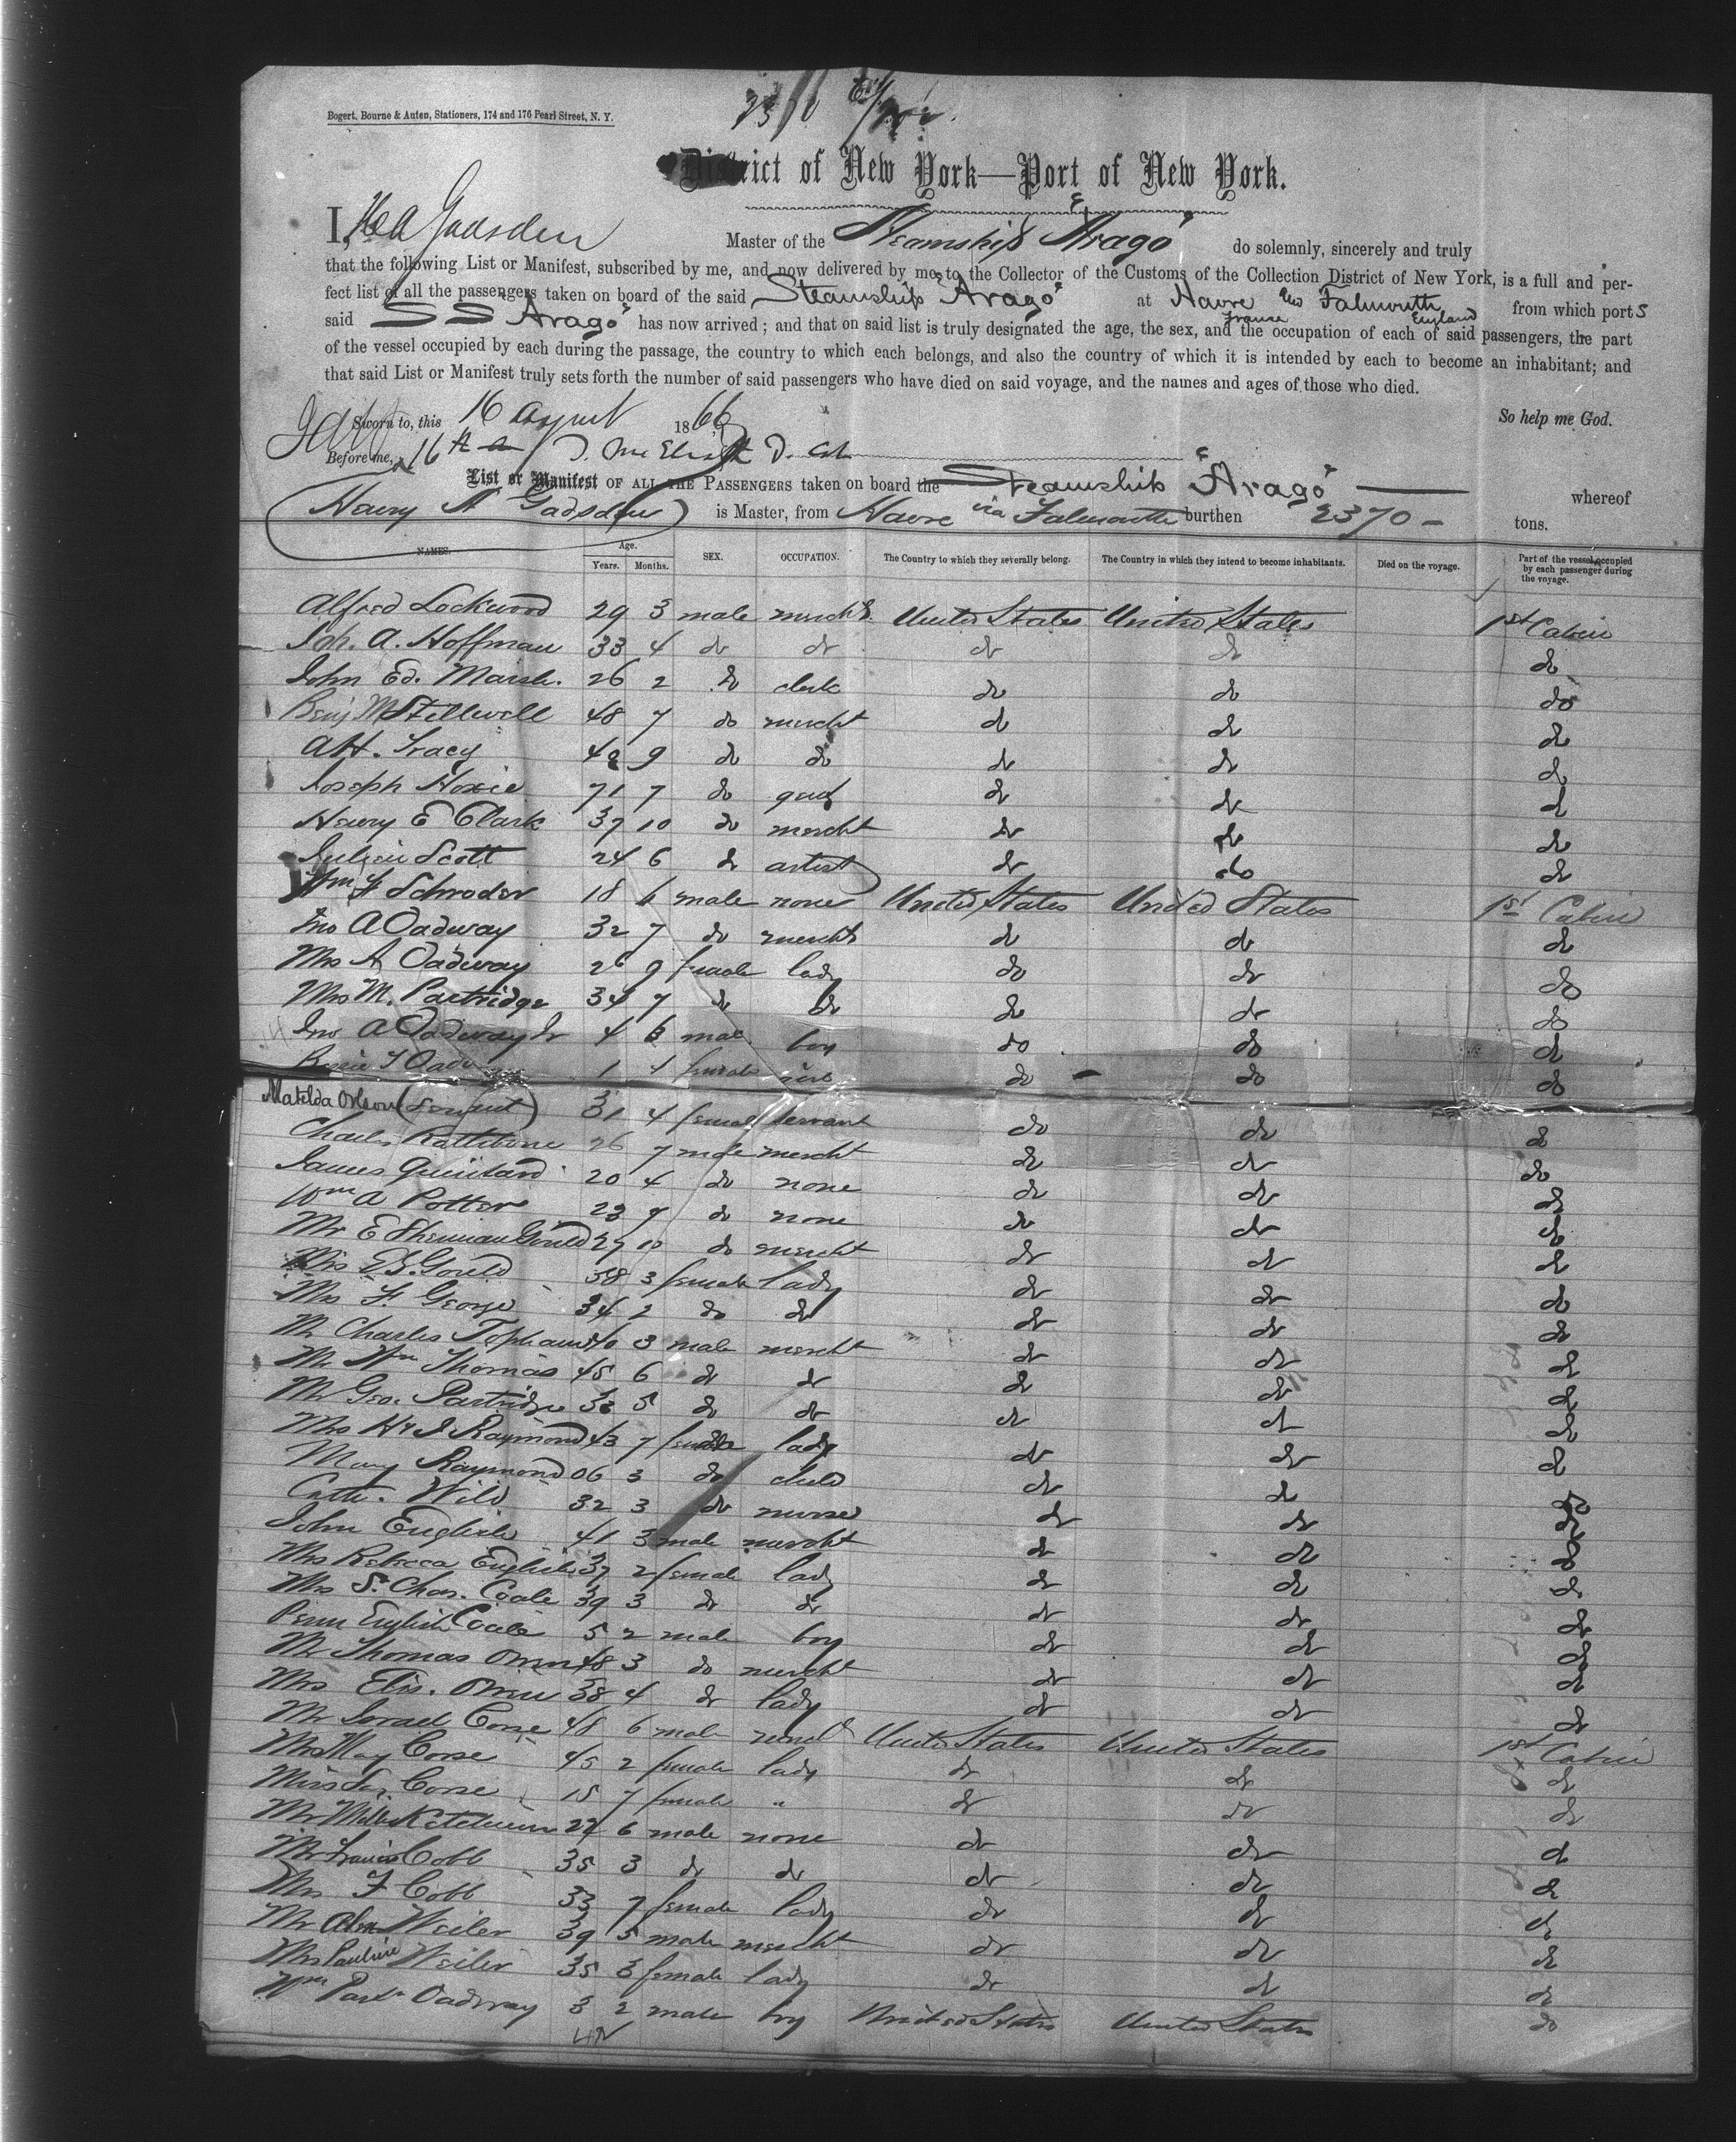 Bogert, Bourne & Auten, Stationers, 174 and 176 Pearl Street, N. Y.
District of New York—Port of New York.
I, H A Gadsden Master of the Steamship "Arago" do solemnly, sincerely and truly
that the following List or Manifest, subscribed by me, and now delivered by me to the Collector of the Customs of the Collection District of New York, is a full and per-
fect list of all the passengers taken on board of the said Steamship "Arago" at Havre France Falmouth England from which ports
said SS Arago" has now arrived; and that on said list is truly designated the age, the sex, and the occupation of each of said passengers, the part
of the vessel occupied by each during the passage, the country to which each belongs, and also the country of which it is intended by each to become an inhabitant; and
that said List or Manifest truly sets forth the number of said passengers who have died on said voyage, and the names and ages of those who died.
Sworn to, this 16 August 1866 So help me God.
Before me, 16th
List or Manifest OF ALL THE PASSENGERS taken on board the Steamship "Arago" whereof
Henry A Gadsden is Master, from Havre via Falmouth burthen 2370 - tons.
NAMES. Age. Years. Months. SEX. OCCUPATION. The Country to which they severally belong. The Country in which they intend to become inhabitants. Died on the voyage. Part of the vessel occupied by each passenger during the voyage.
Alfred Lockwood 29 3 male mercht United States United States 1st Cabin
Joh. A. Hoffman 33 4 do do do do do
John Ed. Marsh. 26 2 do clerk do do do
Benj M Stillwell 48 7 do mercht do do do
A H. Tracy 48 9 do do do do do
Joseph Hoxie 71 7 do do do do
Henry E Clark 37 10 do mercht do do do
Julian Scott 24 6 do artist do do do
Wm F Schroder 18 6 male none United States United States 1st Cabin
Jno A Oadway 32 7 do mercht do do do
Mrs A Oadway 26 9 female lady do do do
Mrs M. Partridge 34 7 do do do do do
Jno A Oadway Jr 4 6 male boy do do do
1 4 female do do do
Matilda Olson (Servant) 31 4 female servant do do do
Charles Rathbone 26 7 male mercht do do do
James Quintard 20 4 do none do do do
Wm A Potter 23 9 do none do do do
Mr E Sherman Gould 27 10 do mercht do do do
Mrs E S. Gould 38 3 female lady do do do
Mrs F. George 34 2 do do do do do
Mr Charles Topham 40 3 male mercht do do do
Mr Wm Thomas 45 6 do do do do do
Mr Geo. Partridge 33 5 do do do do do
Mrs H J Raymond 43 7 female lady do do do
Mary Raymond 06 3 do child do do do
Cath. Wild 32 3 do nurse do do do
John English 41 3 male mercht do do do
Mrs Rebecca English 37 2 female lady do do do
Mrs S. Chas. Coale 39 3 do do do do do
Penn English Coale 5 2 male boy do do do
Mr Thomas Owen 48 3 do mercht do do do
Mrs Elis. Owen 38 4 do lady do do do
Mr Israel Corse 48 6 male United States United States 1st Cabin
Mrs May Corse 45 2 female lady do do do
Miss Corse 15 7 female " do do do
Mr Ketchum 27 6 male none do do do
Mr Francis Cobb 35 3 do do do do do
Mrs F Cobb 33 7 female lady do do do
Mr Alex Weiler 39 5 male mercht do do do
Mrs Pauline Weiler 35 3 female lady do do do
Wm Part. Oadway 3 2 male boy United States United States do